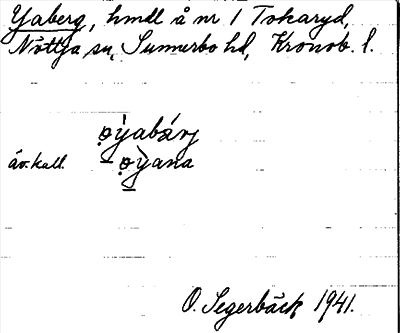 Yaberg, hmdl å nr 1 Tokaryd,
Nöttja sn, Sunnerbo hd, Kronob. l.
øỳabárj
äv. kall. øỳana
O. Segerbäck 1941.